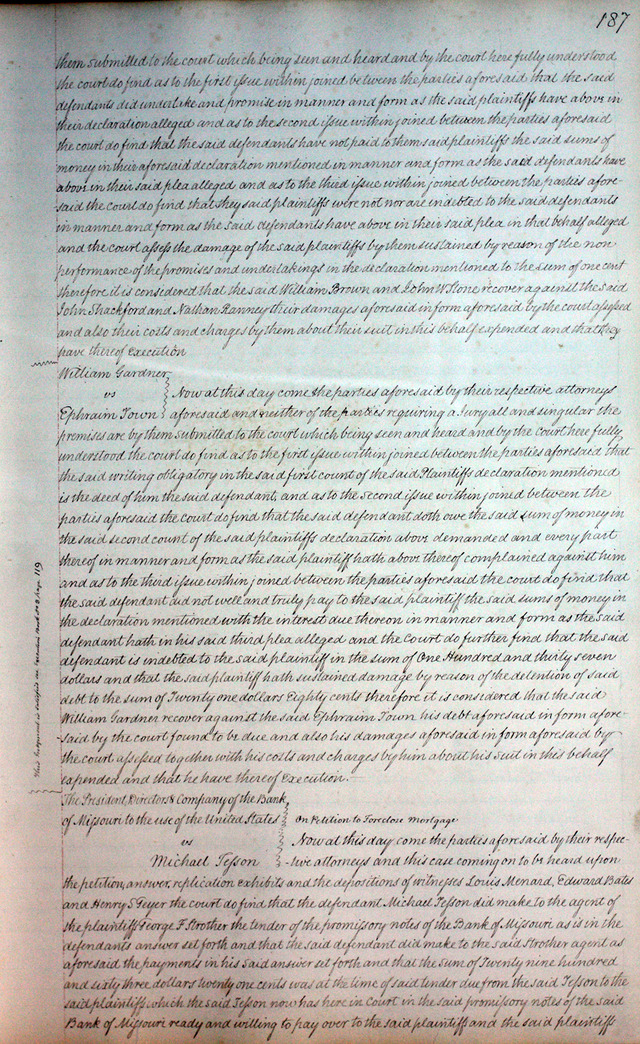 187
them submitted to the court which being seen and heard and by the court here fully understood
the court do find as to the first issue within joined between the parties aforesaid that the said
defendants did undertake and promise in manner and form as the said plaintiffs have above in
their declaration alleged and as to the second issue within joined between the parties aforesaid
the court do find that the said defendants have not paid to them said plaintiffs the said sums of
money in their aforesaid declaration mentioned in manner and form as the said defendants have
above in their said plea alleged and as to the third issue within joined between the parties afore-
said the court do find that they said plaintiffs were not nor are indebted to the said defendants
in manner and form as the said defendants have above in their said plea in that behalf alleged
and the court assess the damage of the said plaintiffs by them sustained by reason of the non
performance of the promises and undertakings in the declaration mentioned to the sum of one cent
therefore it is considered that the said William Brown and John W Stone recover against the said
John Shackford and Nathan Ranney their damages aforesaid in form aforesaid by the court assessed
and also their costs and charges by them about their suit in this behalf expended and that they
have thereof execution
William Gardner
vs Now at this day come the parties aforesaid by their respective attorneys
Ephraim Town aforesaid and neither of the parties requiring a Jury all and singular the
premises are by them submitted to the court which being seen and heard and by the Court here fully
understood the court do find as to the first issue within joined between the parties aforesaid that
the said writing obligatory in the said first count of the said Plaintiffs declaration mentioned
is the deed of him the said defendant, and as to the second issue within joined between the
parties aforesaid the court do find that the said defendant doth owe the said sum of money in
the said second count of the said plaintiffs declaration above demanded and every part
thereof in manner and form as the said plaintiff hath above thereof complained against him
and as to the third issue within joined between the parties aforesaid the court do find, that
the said defendant did not well and truly pay to the said plaintiff the said sums of money in
the declaration mentioned with the interest due thereon in manner and form as the said
defendant hath in his said third plea alleged and the Court do further find that the said
defendant is indebted to the said plaintiff in the sum of One Hundred and thirty seven
dollars and that the said plaintiff hath sustained damage by reason of the detention of said
debt to the sum of Twenty one dollars Eighty cents therefore it is considered that the said
William Gardner recover against the said Ephraim Town his debt aforesaid in form afore-
said by the court found to be due and also his damages aforesaid in form aforesaid by
the court assessed together with his costs and charges by him about his suit in this behalf
expended and that he have thereof Execution.
This Judgment is satisfied see Execution Book No 2 page 119
The President, Directors & Company of the Bank
of Missouri to the use of the United States On Petition to Foreclose mortgage
vs Now at this day come the parties aforesaid by their respec-
Michael Tesson -tive attorneys and this case coming on to be heard upon
the petition, answer, replication exhibits and the depositions of witnesses Louis Menard, Edward Bates
and Henry S Geyer the court do find that the defendant Michael Tesson did make to the agent of
the plaintiff George F. Strother the tender of the promissory notes of the Bank of Missouri as is in the
defendants answer set forth and that the said defendant did make to the said Strother agent as
aforesaid the payments in his said answer set forth and that the sum of Twenty nine hundred
and sixty three dollars twenty one cents was at the time of said tender due from the said Tesson to the
said plaintiffs, which the said Tesson now has here in Court in the said promissory notes of the said
Bank of Missouri ready and willing to pay over to the said plaintiff and the said plaintiffs